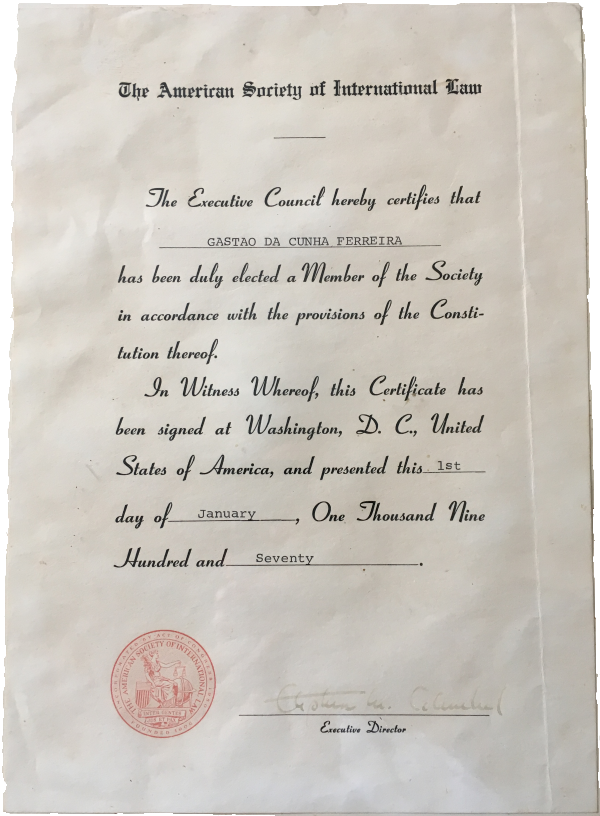 The American Society of International Law
The Executive Council hereby certifies that
GASTAO DA CUNHA FERREIRA
has been duly elected a Member of the Society
in accordance with the provisions of the Consti-
tution thereof.
In Witness Whereof, this Certificate has
been signed at Washington, D. C., United
States of America, and presented this 1st
day of January, One Thousand Nine
Hundred and Seventy.
THE AMERICAN SOCIETY OF INTERNATIONAL LAW
Executive Director